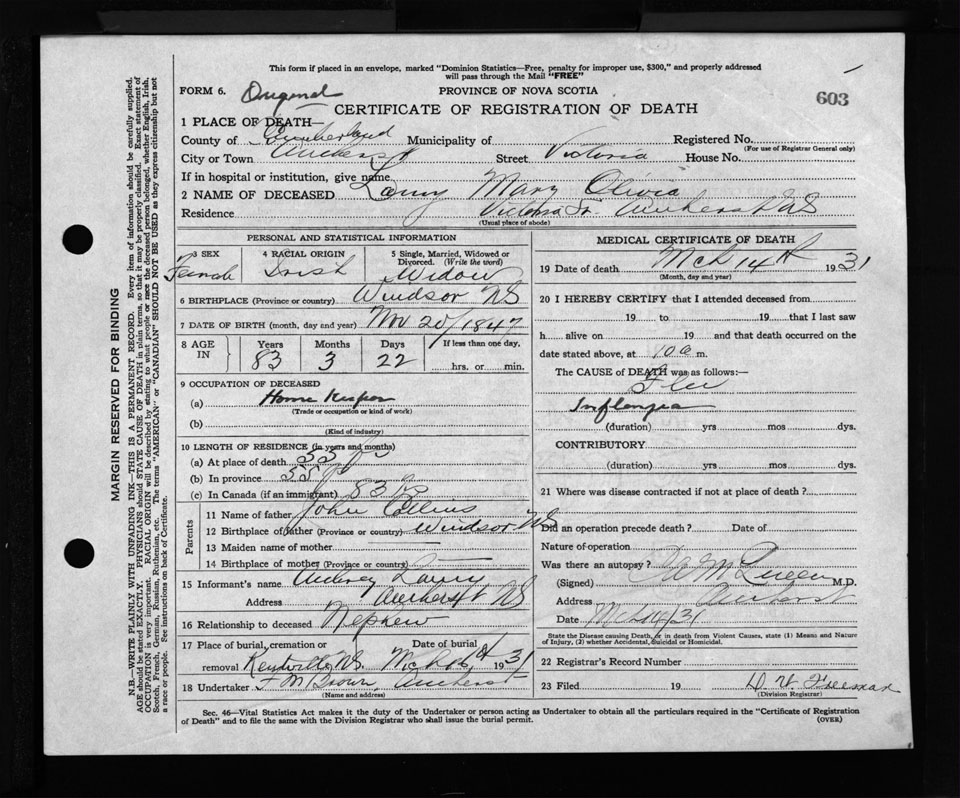 This form if placed in an envelope, marked "Dominion Statistics—Free, penalty for improper use, $300," and properly addressed
will pass through the Mail "FREE"
FORM 6. Original PROVINCE OF NOVA SCOTIA
603
CERTIFICATE OF REGISTRATION OF DEATH
1 PLACE OF DEATH—
County of Cumberland Municipality of Registered No.
(For use of Registrar General only)
City or Town Amherst Street Victoria House No.
If in hospital or institution, give name
2 NAME OF DECEASED Mary Olivia
Residence Victoria St. Amherst NS
(Usual place of abode)
MARGIN RESERVED FOR BINDING
N.B.—WRITE PLAINLY WITH UNFADING INK—THIS IS A PERMANENT RECORD. Every item of information should be carefully supplied.
AGE should be stated EXACTLY. PHYSICIANS should STATE CAUSE OF DEATH in plain terms, so that it may be properly classified. Exact statement of
OCCUPATION is very important. RACIAL ORIGIN will be described by stating to what people or race the deceased person belonged, whether English, Irish,
Scotch, French, German, Russian, Ruthenian, etc. The terms "AMERICAN" or "CANADIAN" SHOULD NOT BE USED as they express citizenship but not
a race or people. See instructions on back of Certificate.
PERSONAL AND STATISTICAL INFORMATION
3 SEX 4 RACIAL ORIGIN 5 Single, Married, Widowed or
Divorced. (Write the word)
Female Irish Widow
6 BIRTHPLACE (Province or country) Windsor NS
7 DATE OF BIRTH (month, day and year) Nov 20/1847
8 AGE IN Years Months Days If less than one day,
83 3 22 hrs. or min.
9 OCCUPATION OF DECEASED
(a) Home Keeper
(Trade or occupation or kind of work)
(b)
(Kind of industry)
10 LENGTH OF RESIDENCE (in years and months)
(a) At place of death 55
(b) In province 55
(c) In Canada (if an immigrant) 83
Parents
11 Name of father John Collins
12 Birthplace of father (Province or country) Windsor NS
13 Maiden name of mother —
14 Birthplace of mother (Province or country) —
15 Informant's name Audrey
Address Amherst NS
16 Relationship to deceased Nephew
17 Place of burial, cremation or Date of burial
removal Kentville NS. Mch 16th 1931
18 Undertaker F M Brown, Amherst
(Name and address)
MEDICAL CERTIFICATE OF DEATH
19 Date of death Mch 14th 1931
(Month, day and year)
20 I HEREBY CERTIFY that I attended deceased from
19 to 19 that I last saw
h alive on 19 and that death occurred on the
date stated above, at 10 a m.
The CAUSE of DEATH was as follows:—
Flu
Influenza
(duration) yrs mos dys.
CONTRIBUTORY
(duration) yrs mos dys.
21 Where was disease contracted if not at place of death?
Did an operation precede death? Date of
Nature of operation
Was there an autopsy?
(Signed) M.D.
Address Amherst
Date Mch 14/31
State the Disease causing Death, or in death from Violent Causes, state (1) Means and Nature
of Injury, (2) whether Accidental, Suicidal or Homicidal.
22 Registrar's Record Number
23 Filed 19 Freeman
(Division Registrar)
Sec. 46—Vital Statistics Act makes it the duty of the Undertaker or person acting as Undertaker to obtain all the particulars required in the "Certificate of Registration
of Death" and to file the same with the Division Registrar who shall issue the burial permit. (OVER)